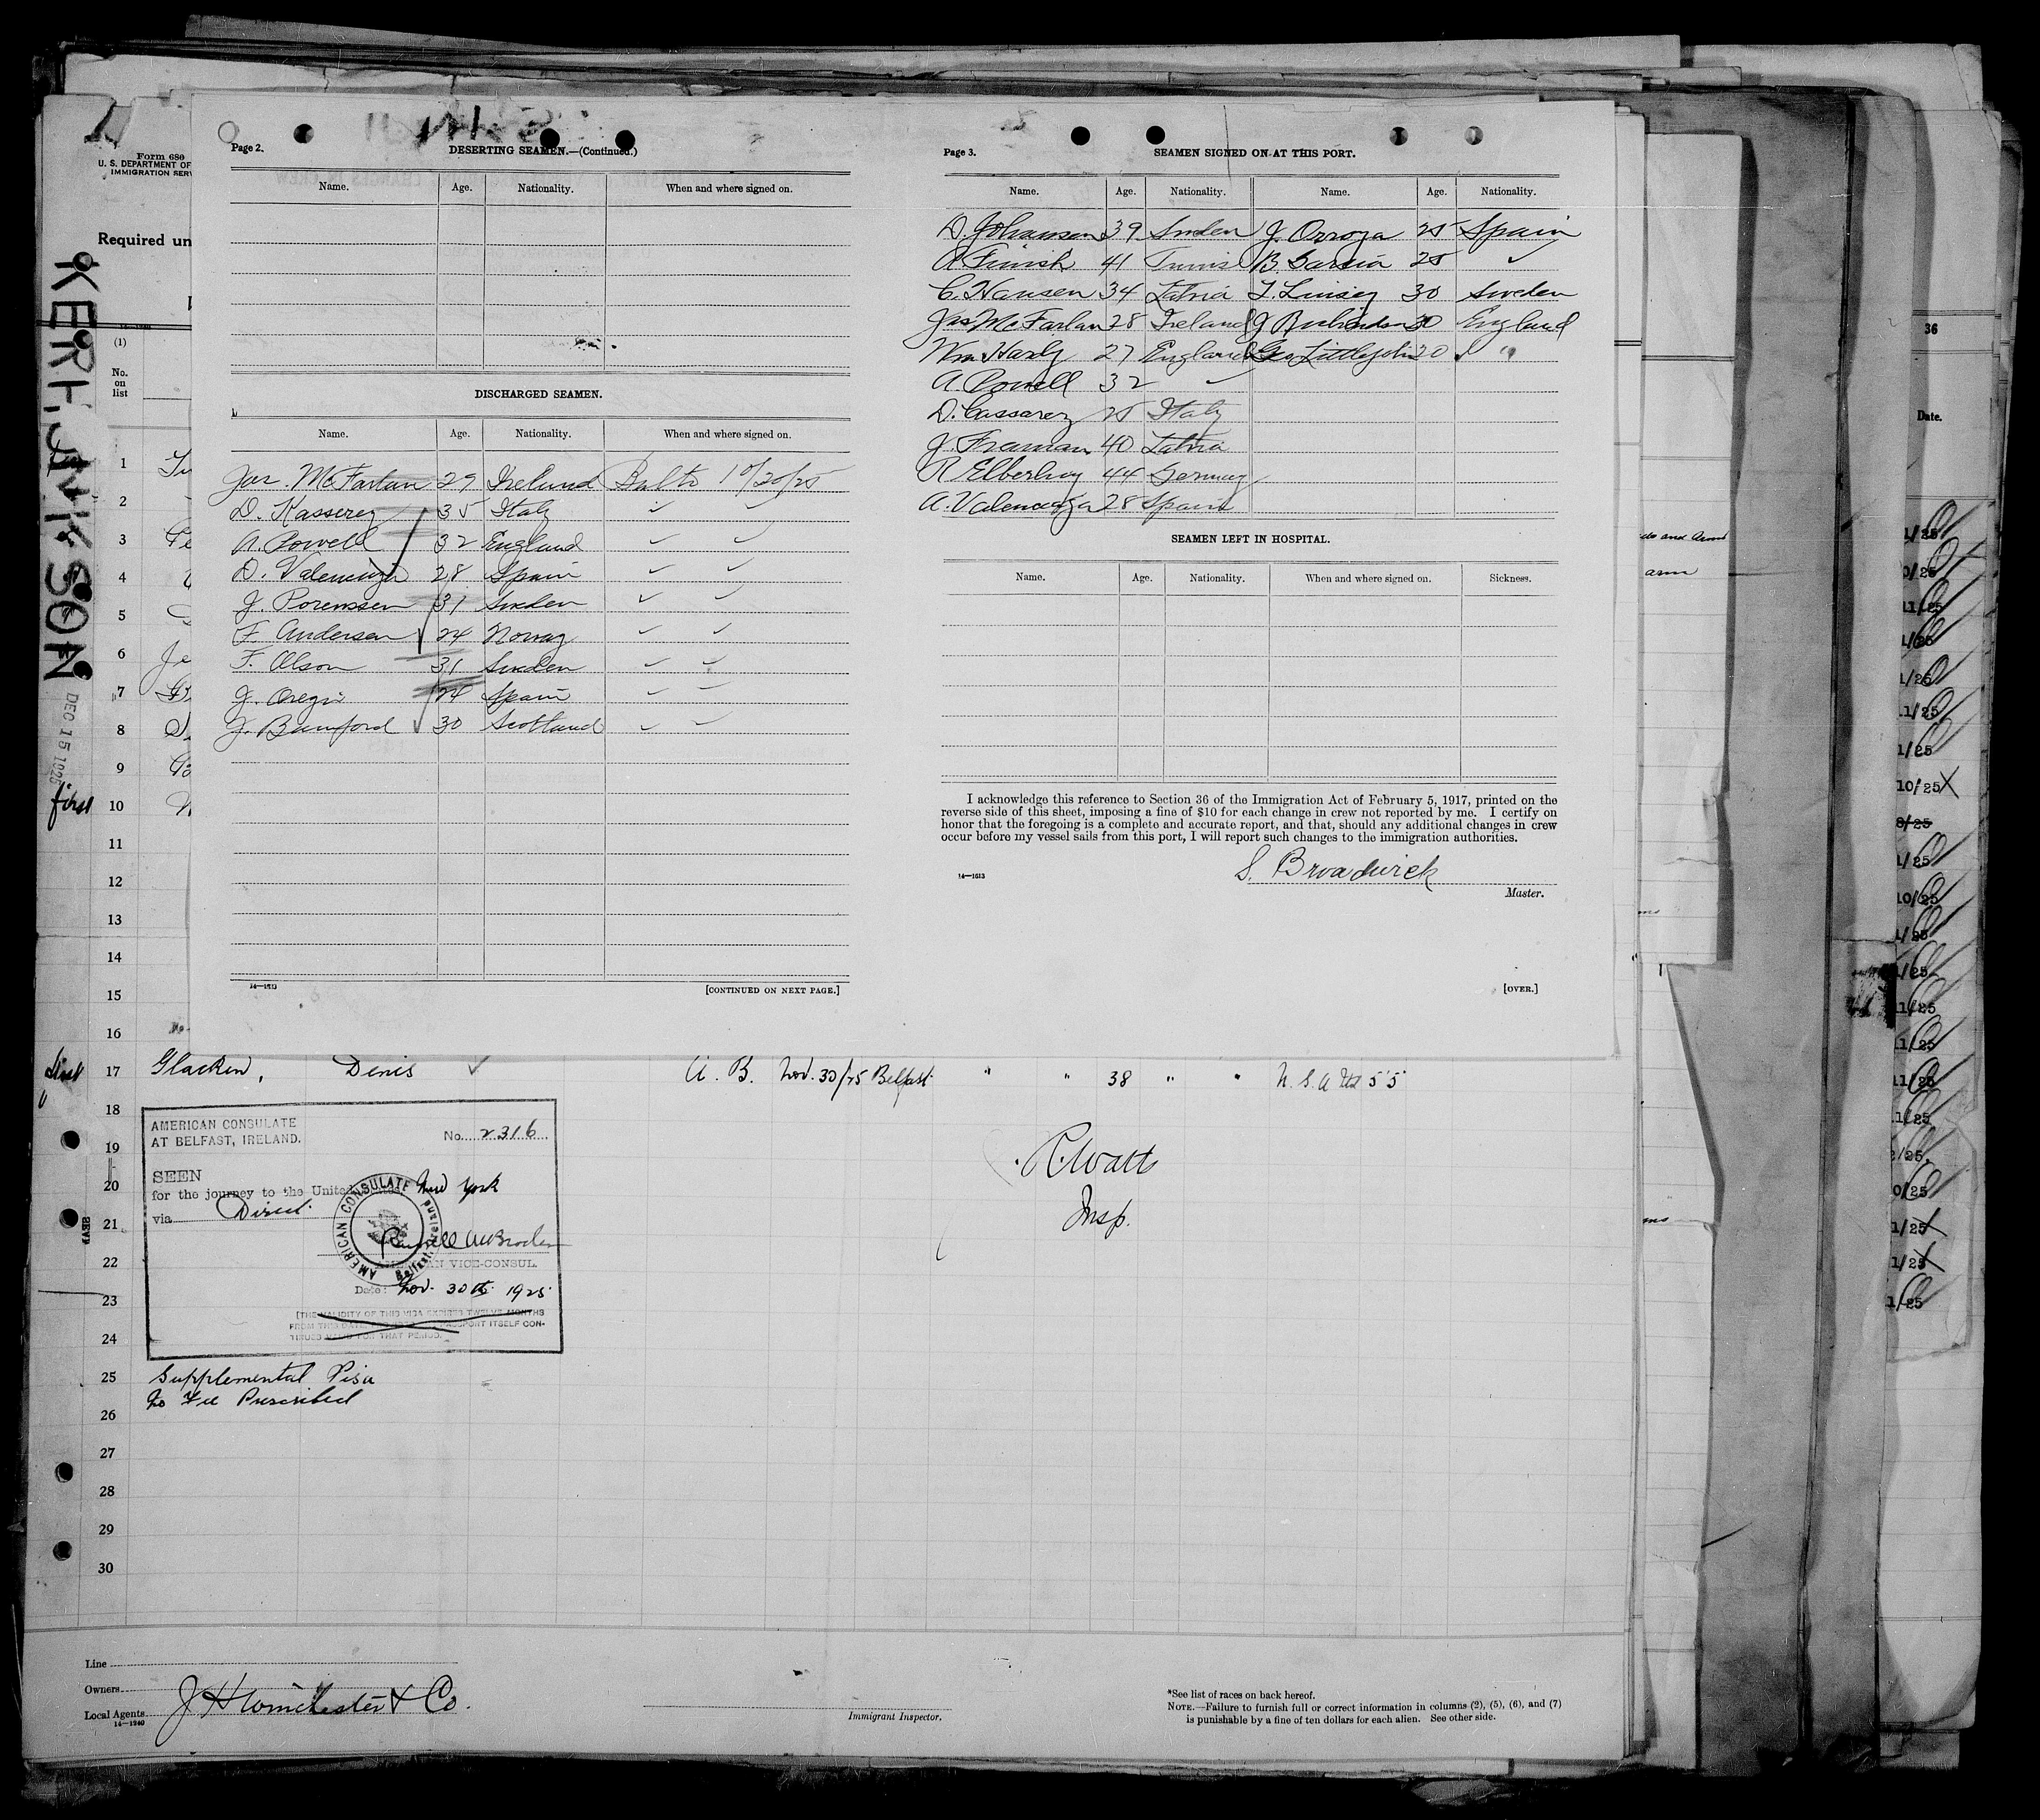 Page 2.
DESERTING SEAMEN.—(Continued.)
Name. Age. Nationality. When and where signed on.
DISCHARGED SEAMEN.
Name. Age. Nationality. When and where signed on.
Jas. McFarlan 29 Ireland Balto 10/20/25
D. Kasserez 35 Italy ✓ ✓
A. Powell 32 England ✓ ✓
D. Valenciza 28 Spain ✓ ✓
J. Porenssen 31 Sweden ✓ ✓
F. Andersen 24 Norway ✓ ✓
F. Olson 31 Sweden ✓ ✓
J. Oregi 24 Spain ✓ ✓
J. Bamford 30 Scotland ✓ ✓
14—1613
[CONTINUED ON NEXT PAGE.]
Page 3.
SEAMEN SIGNED ON AT THIS PORT.
Name. Age. Nationality. Name. Age. Nationality.
D. Johansen 39 Sweden J. Orroza 25 Spain
A. Finish 41 Tunis B. Garcia 25 ✓
C. Hansen 34 Latvia T. Linsey 30 Sweden
Jas McFarlan 28 Ireland J Richardson 30 England
Wm Hardy 27 England Geo Littlejohn 20 "
A. Powell 32 ✓
D. Cassarez 25 Italy
J. Freeman 40 Latvia
R Elberling 44 Germany
A. Valencuza 28 Spain
SEAMEN LEFT IN HOSPITAL.
Name. Age. Nationality. When and where signed on. Sickness.
I acknowledge this reference to Section 36 of the Immigration Act of February 5, 1917, printed on the
reverse side of this sheet, imposing a fine of $10 for each change in crew not reported by me. I certify on
honor that the foregoing is a complete and accurate report, and that, should any additional changes in crew
occur before my vessel sails from this port, I will report such changes to the immigration authorities.
S. Broadwick
14—1613
Master.
[OVER.]
Form 680
U. S. DEPARTMENT OF
IMMIGRATION SERV
Required un
(1)
No.
on
list
KERHONKSON
DEC 15 1925
first
1
2
3
4
5
6
7
8
9
10
11
12
13
14
15
16
first 17 Glacken, Denis ✓ A. B. Nov. 30/25 Belfast " " 38 " " U. S. A 5'5"
18
19
20
21
22
23
24
25
26
27
28
29
30
AMERICAN CONSULATE
AT BELFAST, IRELAND.
No. 2316
SEEN
for the journey to the United New York
via Direct.
AMERICAN CONSULATE
Belfast, Ireland
AMERICAN VICE-CONSUL.
Date: Nov. 30th 1925
[THE VALIDITY OF THIS VISA EXPIRES TWELVE MONTHS
FROM THIS DATE PASSPORT ITSELF CON-
TINUES VALID FOR THAT PERIOD.
Supplemental Visa
No Fee Prescribed
R. Watts
Insp.
Line
Owners
Local Agents J H Winchester & Co.
14—1240
Immigrant Inspector.
*See list of races on back hereof.
NOTE.—Failure to furnish full or correct information in columns (2), (5), (6), and (7)
is punishable by a fine of ten dollars for each alien. See other side.
arm
36
Date.
1/25
0/25
11/25
1/25
1/25
11/25
1/25
10/25
8/25
1/25
10/25
1/25
1/25
11/25
11/25
11/25
1/25
2/25
0/25
1/25
1/25
1/25